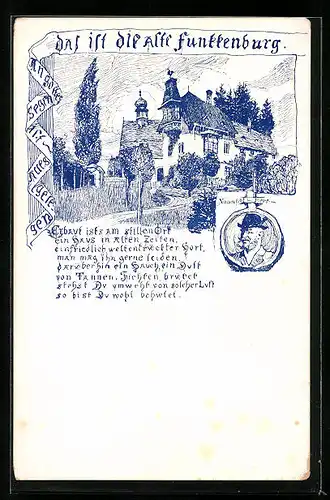 Das ist die alte Funkkenburg.
An gottes
Segen
ist
Alles
gele-
gen
Erbaut ists am stillen Ort
Ein Haus in Alten Zeiten,
ein friedlich weltentrückter Hort,
man mag ihn gerne leiden,
darüber hin ein Hauch, ein Duft
von Tannen, Fichten brütet
stehst Du umweht von solcher Luft
so bist Du wohl behütet.